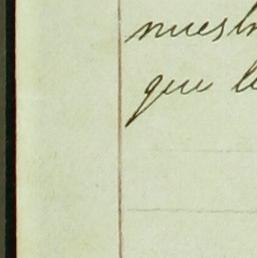 nuestr
que le